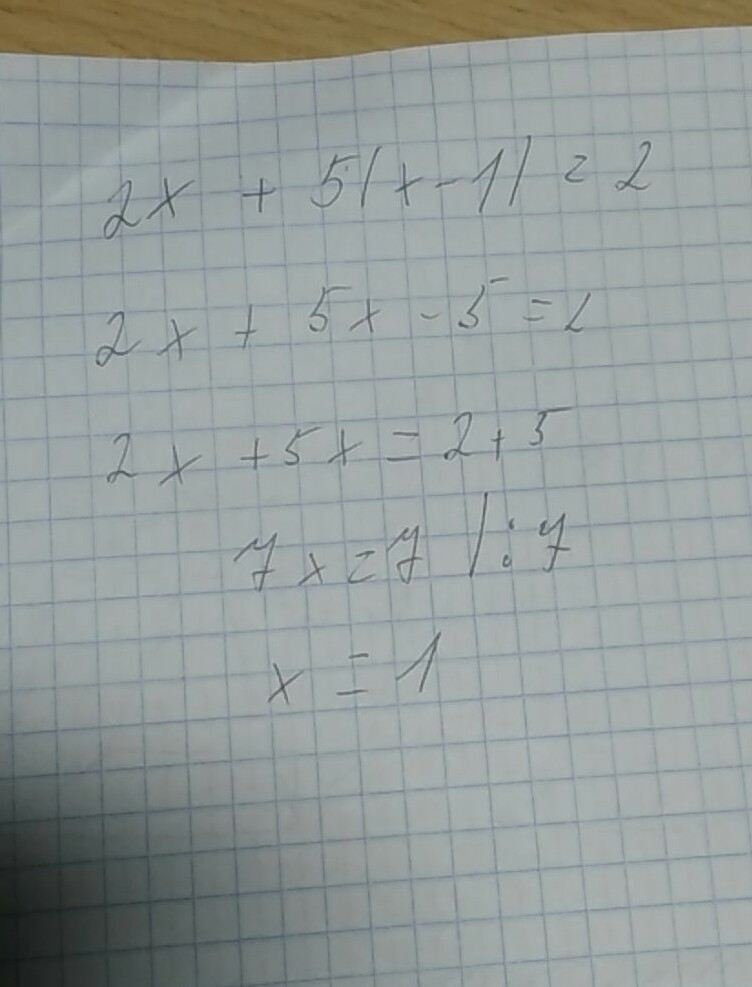 2x + 5(x-1) = 2
2x + 5x - 5 = 2
2x + 5x = 2 + 5
7x = 7 |:7
x = 1